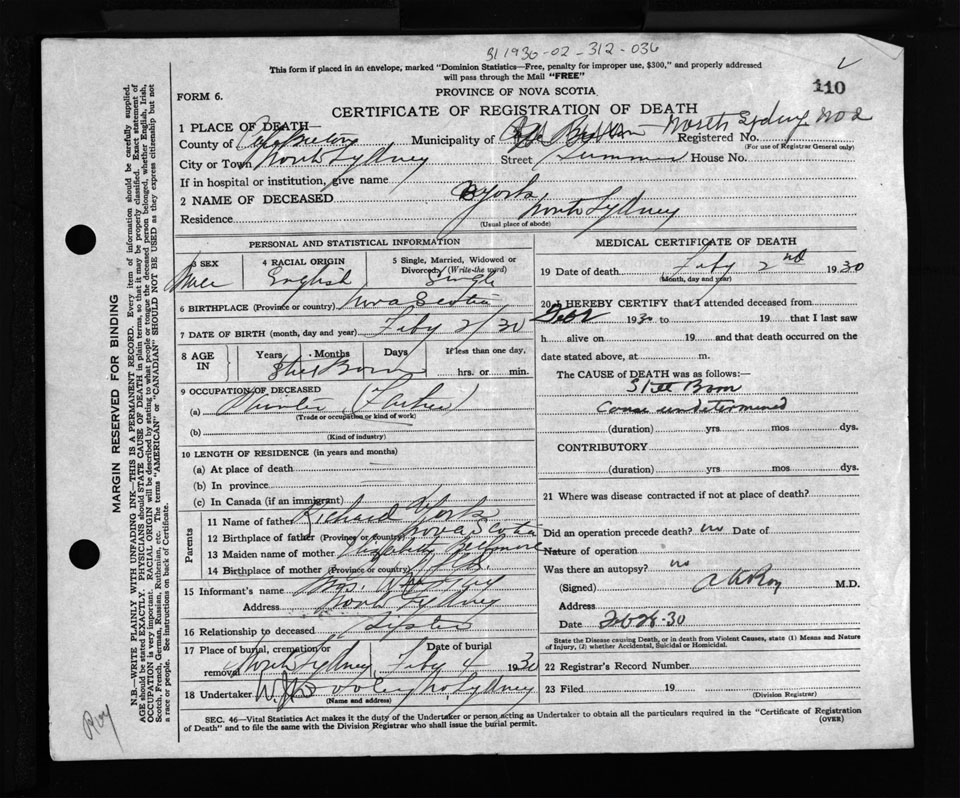 31 1936-02-312-036
This form if placed in an envelope, marked "Dominion Statistics—Free, penalty for improper use, $300," and properly addressed
will pass through the Mail "FREE"
110
FORM 6.
PROVINCE OF NOVA SCOTIA
CERTIFICATE OF REGISTRATION OF DEATH
1 PLACE OF DEATH—
County of Cape Breton Municipality of Cape Breton North Sydney No 2 Registered No.
(For use of Registrar General only)
City or Town North Sydney Street Summer House No.
If in hospital or institution, give name
2 NAME OF DECEASED York
Residence North Sydney
(Usual place of abode)
PERSONAL AND STATISTICAL INFORMATION
3 SEX 4 RACIAL ORIGIN 5 Single, Married, Widowed or Divorced (Write the word)
Male English Single
6 BIRTHPLACE (Province or country) Nova Scotia
7 DATE OF BIRTH (month, day and year) Feby 2/30
8 AGE IN Years Months Days If less than one day,
Still Born hrs. or min.
9 OCCUPATION OF DECEASED
(a) (Father)
(Trade or occupation or kind of work)
(b)
(Kind of industry)
10 LENGTH OF RESIDENCE (in years and months)
(a) At place of death
(b) In province
(c) In Canada (if an immigrant)
Parents
11 Name of father Richard York
12 Birthplace of father (Province or country) Nova Scotia
13 Maiden name of mother Elizabeth
14 Birthplace of mother (Province or country)
15 Informant's name Mrs.
Address North Sydney
16 Relationship to deceased Sister
17 Place of burial, cremation or removal Date of burial
North Sydney Feby 4 1930
18 Undertaker No Sydney
(Name and address)
MEDICAL CERTIFICATE OF DEATH
19 Date of death Feby 2nd 1930
(Month, day and year)
20 I HEREBY CERTIFY that I attended deceased from
Feb 2 1930 to 19 that I last saw
h alive on 19 and that death occurred on the
date stated above, at m.
The CAUSE OF DEATH was as follows:
Still Born
Cause undetermined
(duration) yrs mos dys.
CONTRIBUTORY
(duration) yrs mos dys.
21 Where was disease contracted if not at place of death?
Did an operation precede death? no Date of
Nature of operation
Was there an autopsy? no
(Signed) M.D.
Address
Date
State the Disease causing Death, or in death from Violent Causes, state (1) Means and Nature
of Injury, (2) whether Accidental, Suicidal or Homicidal.
22 Registrar's Record Number
23 Filed 19
(Division Registrar)
SEC. 46—Vital Statistics Act makes it the duty of the Undertaker or person acting as Undertaker to obtain all the particulars required in the "Certificate of Registration
of Death" and to file the same with the Division Registrar who shall issue the burial permit. (OVER)
MARGIN RESERVED FOR BINDING
N.B.—WRITE PLAINLY WITH UNFADING INK—THIS IS A PERMANENT RECORD. Every item of information should be carefully supplied.
AGE should be stated EXACTLY. PHYSICIANS should STATE CAUSE OF DEATH in plain terms, so that it may be properly classified. Exact statement of
OCCUPATION is very important. RACIAL ORIGIN will be described by stating to what people or tongue the deceased person belonged, whether English, Irish,
Scotch, French, German, Russian, Ruthenian, etc. The terms "AMERICAN" or "CANADIAN" SHOULD NOT BE USED as they express citizenship but not
a race or people. See instructions on back of Certificate.
Roy